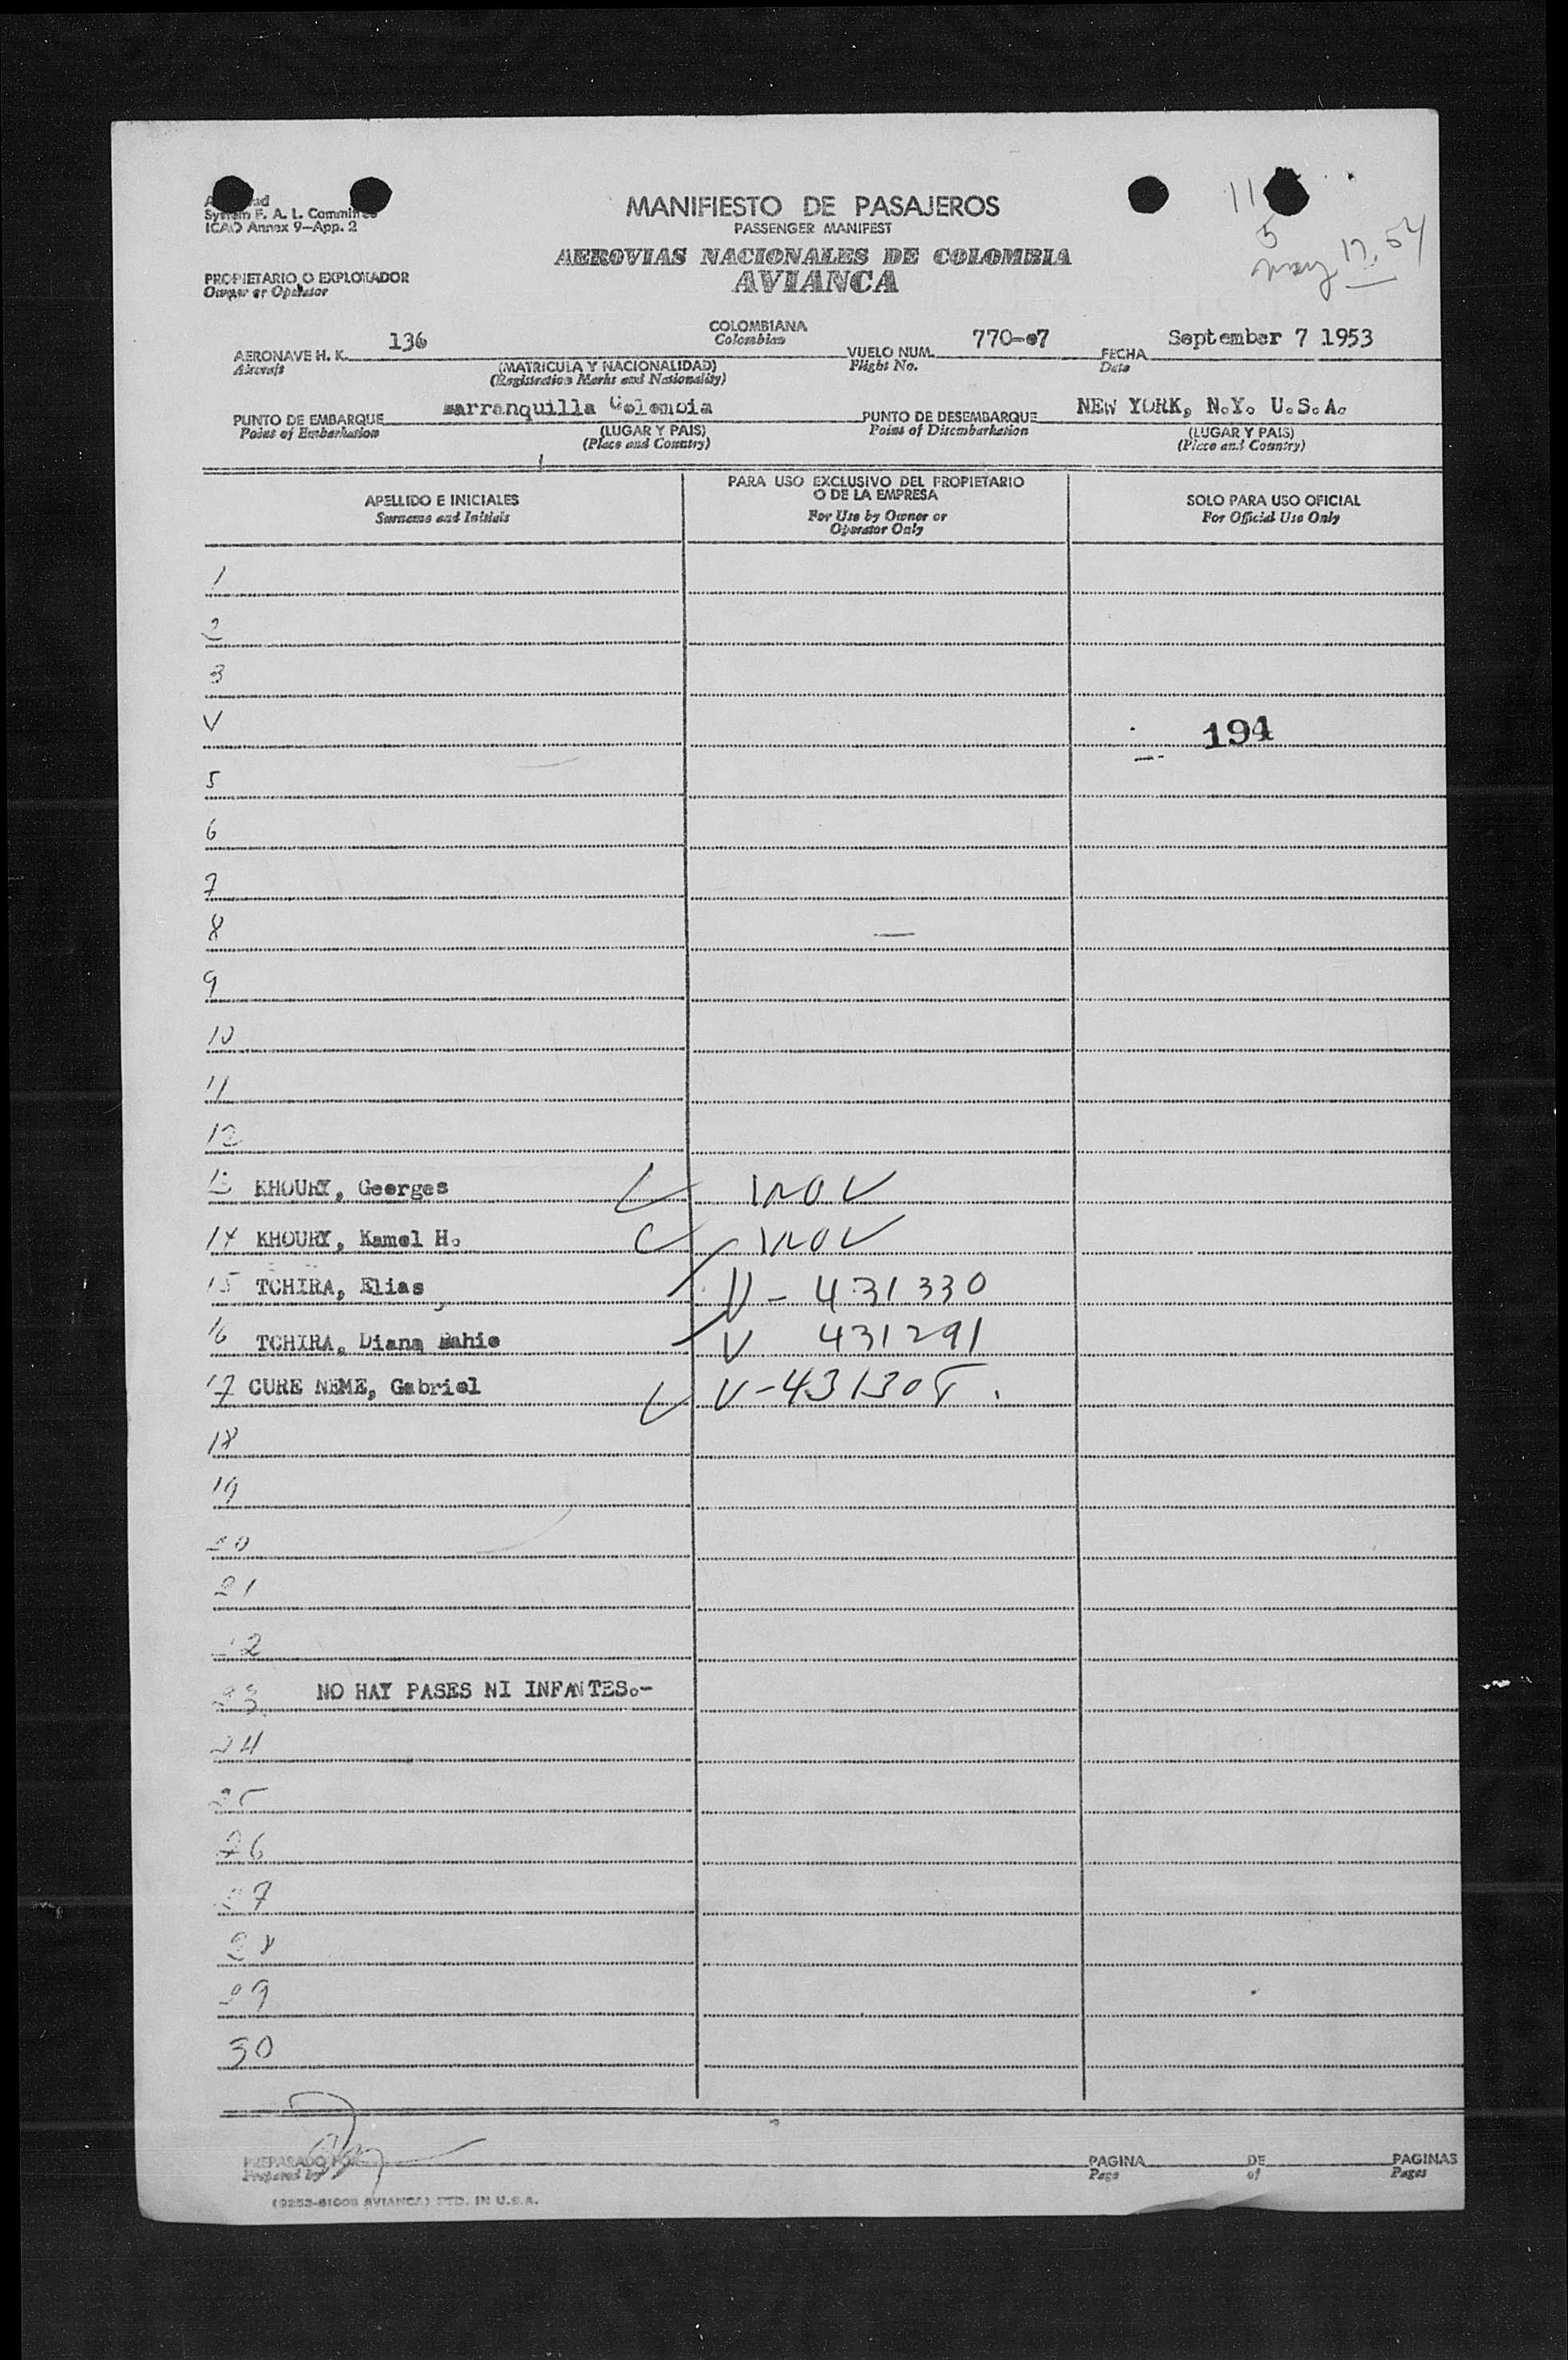 System F. A. L. Committee
ICAO Annex 9—App. 2
MANIFIESTO DE PASAJEROS
PASSENGER MANIFEST
AEROVIAS NACIONALES DE COLOMBIA
AVIANCA
11
5
may 17. 54
PROPIETARIO O EXPLOTADOR
Owner or Operator
AERONAVE H. K. 136 COLOMBIANA VUELO NUM. 770-e7 FECHA September 7 1953
Aircraft Colombian Flight No. Date
(MATRICULA Y NACIONALIDAD)
(Registration Marks and Nationality)
PUNTO DE EMBARQUE Barranquilla Colombia PUNTO DE DESEMBARQUE NEW YORK, N.Y. U.S.A.
Point of Embarkation (LUGAR Y PAIS) Point of Disembarkation (LUGAR Y PAIS)
(Place and Country) (Place and Country)
APELLIDO E INICIALES
Surname and Initials
PARA USO EXCLUSIVO DEL PROPIETARIO
O DE LA EMPRESA
For Use by Owner or
Operator Only
SOLO PARA USO OFICIAL
For Official Use Only
1
2
3
V 194
5
6
7
8
9
10
11
12
13 KHOURY, Georges
14 KHOURY, Kamel H.
15 TCHIRA, Elias V- 431330
16 TCHIRA, Diana Bahie V 431291
17 CURE NEME, Gabriel
18
19
20
21
22
23 NO HAY PASES NI INFANTES.-
24
25
26
27
28
29
30
PREPARADO POR PAGINA DE PAGINAS
Prepared by Page of Pages
(9253-6100B AVIANCA) PTD. IN U.S.A.